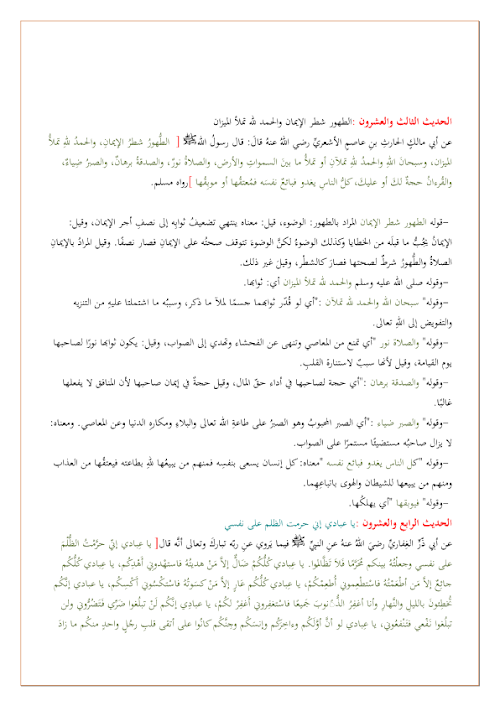 الحديث الثالث والعشرون :الطهور شطر الإيمان والحمد لله تملأ الميزان
عن أبي مالكٍ الحارثِ بنِ عاصمٍ الأشعريِّ رضي اللهُ عنهُ قالَ: قال رسولُ اللهِ ﷺ [ الطُّهورُ شطرُ الإيمانِ، والحمدُ للهِ تملأُ
الميزان، وسبحانَ اللهِ والحمدُ للهِ تملآنِ أو تملأُ ما بينَ السمواتِ والأرضِ، والصلاةُ نورٌ، والصدقةُ برهانٌ، والصبرُ ضِياءٌ،
والقُرءانُ حجةٌ لكَ أو عليكَ، كلُّ الناسِ يغدو فبائعٌ نفسَه فمُعتقُها أو موبقُها ]رواه مسلم.
–قوله الطهور شطر الإيمان المراد بالطهور: الوضوء، قيل: معناه ينتهي تضعيفُ ثوابِه إلى نصفِ أجرِ الإيمان، وقيل:
الإيمانُ يجُبُّ ما قبلَه من الخطايا وكذلك الوضوءُ لكنَّ الوضوءَ تتوقف صحتُه على الإيمانِ فصار نصفًا. وقيل المرادُ بالإيمانِ
الصلاةُ والطُّهورُ شرطٌ لصحتها فصارَ كالشطْرِ، وقيل غير ذلك.
–وقوله صلى الله عليه وسلم والحمد لله تملأ الميزان أي: ثوابها.
–وقوله" سبحان الله والحمد لله تملآن :"أي لو قُدّر ثوابهما جسمًا لملأ ما ذكر، وسببُه ما اشتملتا عليهِ من التنزيه
والتفويض إلى اللهِ تعالى.
–وقوله" والصلاة نور "أي تمنع من المعاصي وتنهى عن الفحشاء وتهدي إلى الصواب، وقيل: يكون ثوابها نورًا لصاحبها
يوم القيامة، وقيل لأنها سببٌ لاستنارة القلبِ.
–وقوله" والصدقة برهان :"أي حجة لصاحبها في أداء حقّ المال، وقيل حجةٌ في إيمان صاحبها لأن المنافق لا يفعلها
غالبًا.
–وقوله" والصبر ضياء :"أي الصبر المحبوبُ وهو الصبرُ على طاعةِ الله تعالى والبلاءِ ومكاره الدنيا وعن المعاصي. ومعناه:
لا يزال صاحبُه مستضيئًا مستمرًا على الصواب.
–وقوله "كل الناس يغدو فبائع نفسه "معناه: كل إنسان يسعى بنفسِه فمنهم من يبيعُها للهِ بطاعته فيعتقُها من العذاب
ومنهم من يبيعها للشيطان والهوى باتباعِهما.
–وقوله" فيوبقها "أي يهلكُها.
الحديث الرابع والعشرون :يا عبادي إني حرمت الظلم على نفسي
عن أَبي ذَرٍّ الغِفاريِّ رضيَ اللهُ عنهُ عنِ النبيِّ ﷺ فيما يَروي عن ربِّه تباركَ وتعالى أنَّه قال[ يا عِبادي إنِّي حرَّمْتُ الظُّلْمَ
على نفسي وجعلْتُهُ بينكم مُحَرَّمًا فَلا تَظَالَموا. يا عِبادي كُلُّكُمْ ضَالٌّ إلاَّ مَنْ هديتُهُ فاستَهْدوني أَهْدِكُم، يا عِبادي كُلُّكُم
جائِعٌ إلاَّ مَن أَطْعَمْتُهُ فاسْتَطْعِموني أُطْعِمْكُمْ، يا عِبادي كُلُّكُم عَارٍ إلاَّ مَنْ كَسَوْتُهُ فاسْتَكْسُوني أَكْسِكُم، يا عبادي إنَّكُم
تُخْطِئونَ بالليلِ والنَّهارِ وأنا أغفِرُ الذُّنوبَ جَميعًا فاستَغفِروني أَغفِرْ لكُمْ، يا عبادِي إنَّكُم لَنْ تبلُغوا ضَرِّي فَتَضُرُّوني ولن
تبلُغوا نَفْعي فتَنْفعُوني، يا عِبادي لو أنَّ أوَّلَكُم وءاخِرَكُم وإنسَكُم وجِنَّكُم كانُوا على أتقى قلبِ رجُلٍ واحدٍ منكُم ما زادَ